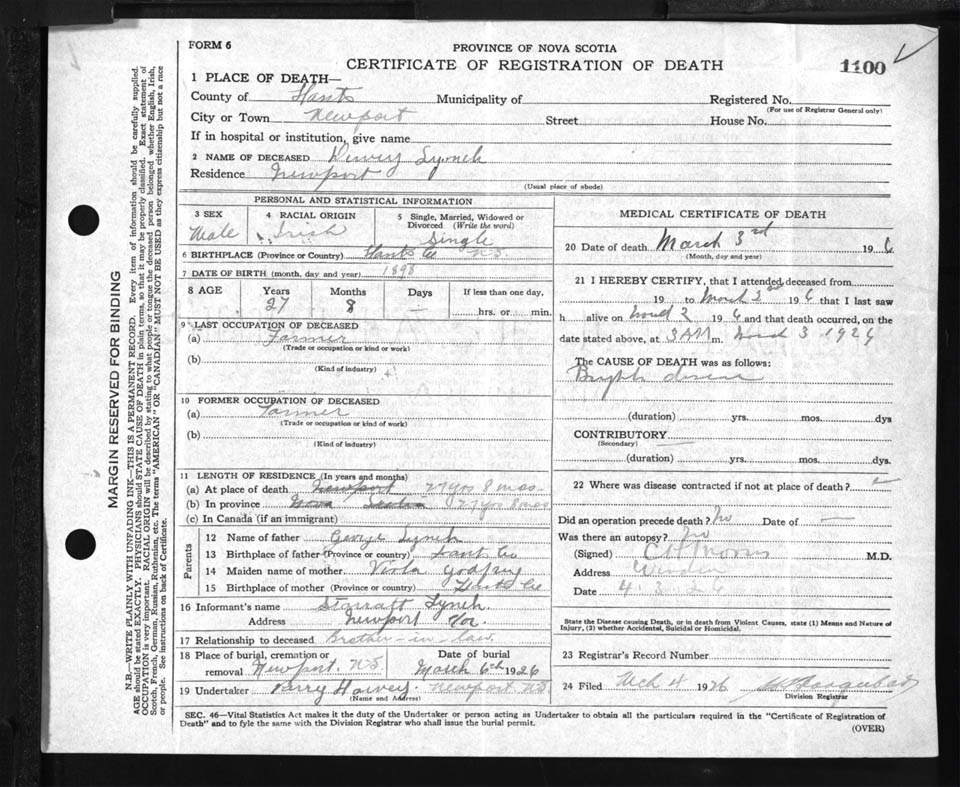 FORM 6
PROVINCE OF NOVA SCOTIA
CERTIFICATE OF REGISTRATION OF DEATH
1100
1 PLACE OF DEATH—
County of Hants Municipality of Registered No.
(For use of Registrar General only)
City or Town Newport Street House No.
If in hospital or institution, give name
2 NAME OF DECEASED Dewey Lynch
Residence Newport
(Usual place of abode)
PERSONAL AND STATISTICAL INFORMATION
3 SEX
Male
4 RACIAL ORIGIN
Irish
5 Single, Married, Widowed or Divorced (Write the word)
Single
6 BIRTHPLACE (Province or Country) Hants Co N.S.
7 DATE OF BIRTH (month, day and year) 1898
8 AGE Years Months Days If less than one day,
27 8 — hrs. or min.
9 LAST OCCUPATION OF DECEASED
(a) Farmer
(Trade or occupation or kind or work)
(b)
(Kind of industry)
10 FORMER OCCUPATION OF DECEASED
(a) Farmer
(Trade or occupation or kind of work)
(b)
(Kind of industry)
11 LENGTH OF RESIDENCE (In years and months)
(a) At place of death Newport 27 yrs 8 mos
(b) In province Nova Scotia 27 yrs 8 mos
(c) In Canada (if an immigrant)
Parents
12 Name of father George Lynch
13 Birthplace of father (Province or country) Hants Co
14 Maiden name of mother Godfrey
15 Birthplace of mother (Province or country) Hants Co
16 Informant's name Starratt Lynch.
Address Newport
17 Relationship to deceased Brother-in-law
18 Place of burial, cremation or removal Newport. N.S.
Date of burial
March 6th 1926
19 Undertaker Harvey. Newport N.S.
(Name and Address)
MEDICAL CERTIFICATE OF DEATH
20 Date of death March 3rd 19 6
(Month, day and year)
21 I HEREBY CERTIFY, that I attended deceased from
19 to March 2nd 19 6 that I last saw
h alive on 2 19 6 and that death occurred, on the
date stated above, at 3 AM m. March 3 1926
The CAUSE OF DEATH was as follows:
Brights disease
(duration) yrs. mos. dys
CONTRIBUTORY —
(Secondary)
(duration) yrs. mos. dys.
22 Where was disease contracted if not at place of death?
Did an operation precede death? No Date of —
Was there an autopsy? No
(Signed) M.D.
Address Windsor
Date 4.3.26
State the Disease causing Death, or in death from Violent Causes, state (1) Means and Nature of
Injury, (2) whether Accidental, Suicidal or Homicidal.
23 Registrar's Record Number
24 Filed Mch 4 1926
Division Registrar
SEC. 46—Vital Statistics Act makes it the duty of the Undertaker or person acting as Undertaker to obtain all the particulars required in the "Certificate of Registration of
Death" and to fyle the same with the Division Registrar who shall issue the burial permit.
(OVER)
MARGIN RESERVED FOR BINDING
N.B.—WRITE PLAINLY WITH UNFADING INK—THIS IS A PERMANENT RECORD. Every item of information should be carefully supplied.
AGE should be stated EXACTLY. PHYSICIANS should STATE CAUSE OF DEATH in plain terms, so that it may be properly classified. Exact statement of
OCCUPATION is very important. RACIAL ORIGIN will be described by stating to what people or tongue the deceased person belonged whether English, Irish,
Scotch, French, German, Russian, Ruthenian, etc. The terms "AMERICAN" OR "CANADIAN" MUST NOT BE USED as they express citizenship but not a race
or people. See instructions on back of Certificate.